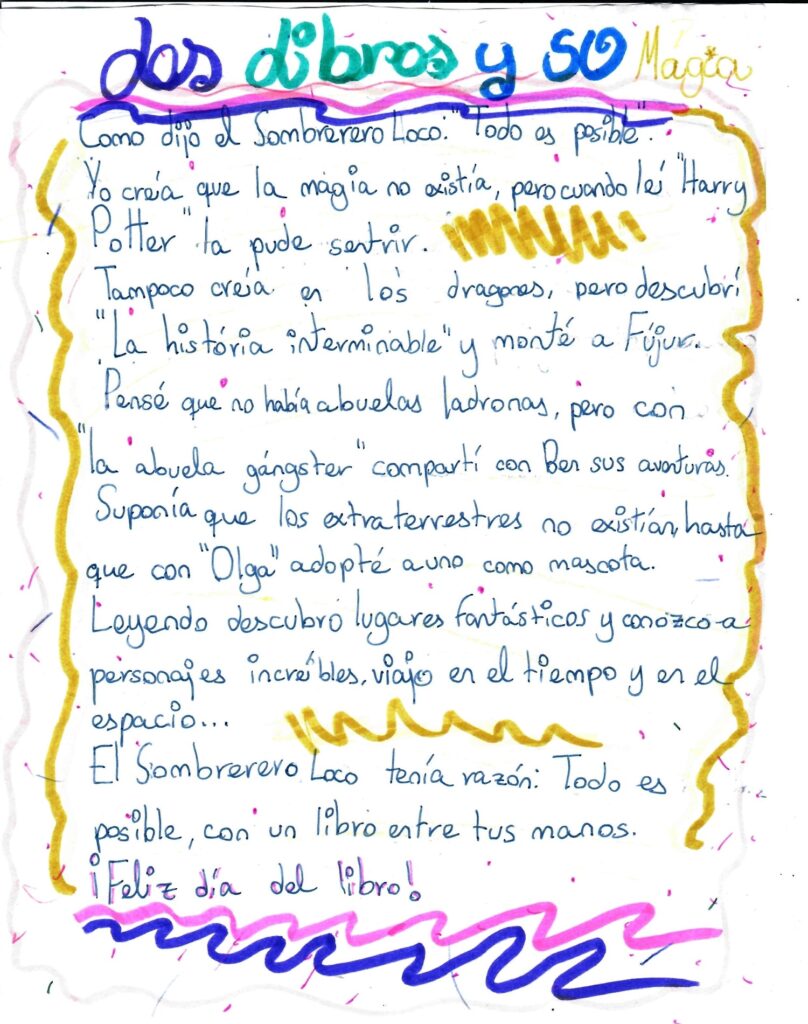 Los Libros y su Mágia
Como dijo el Sombrerero Loco: "Todo es posible".
Yo creía que la mágia no existía, pero cuando leí "Harry
Potter" la pude sentrir.
Tampoco creía en los dragones, pero descubrí
"La história interminable" y monté a Fújur.
Pensé que no había abuelas ladronas, pero con
"la abuela gángster" compartí con Ben sus aventuras.
Suponía que los extraterrestres no existían, hasta
que con "Olga" adopté a uno como mascota.
Leyendo descubro lugares fantásticos y conozco a
personajes increíbles, viajo en el tiempo y en el
espacio...
El Sombrerero Loco tenía razón: Todo es
posible, con un libro entre tus manos.
¡Feliz día del libro!